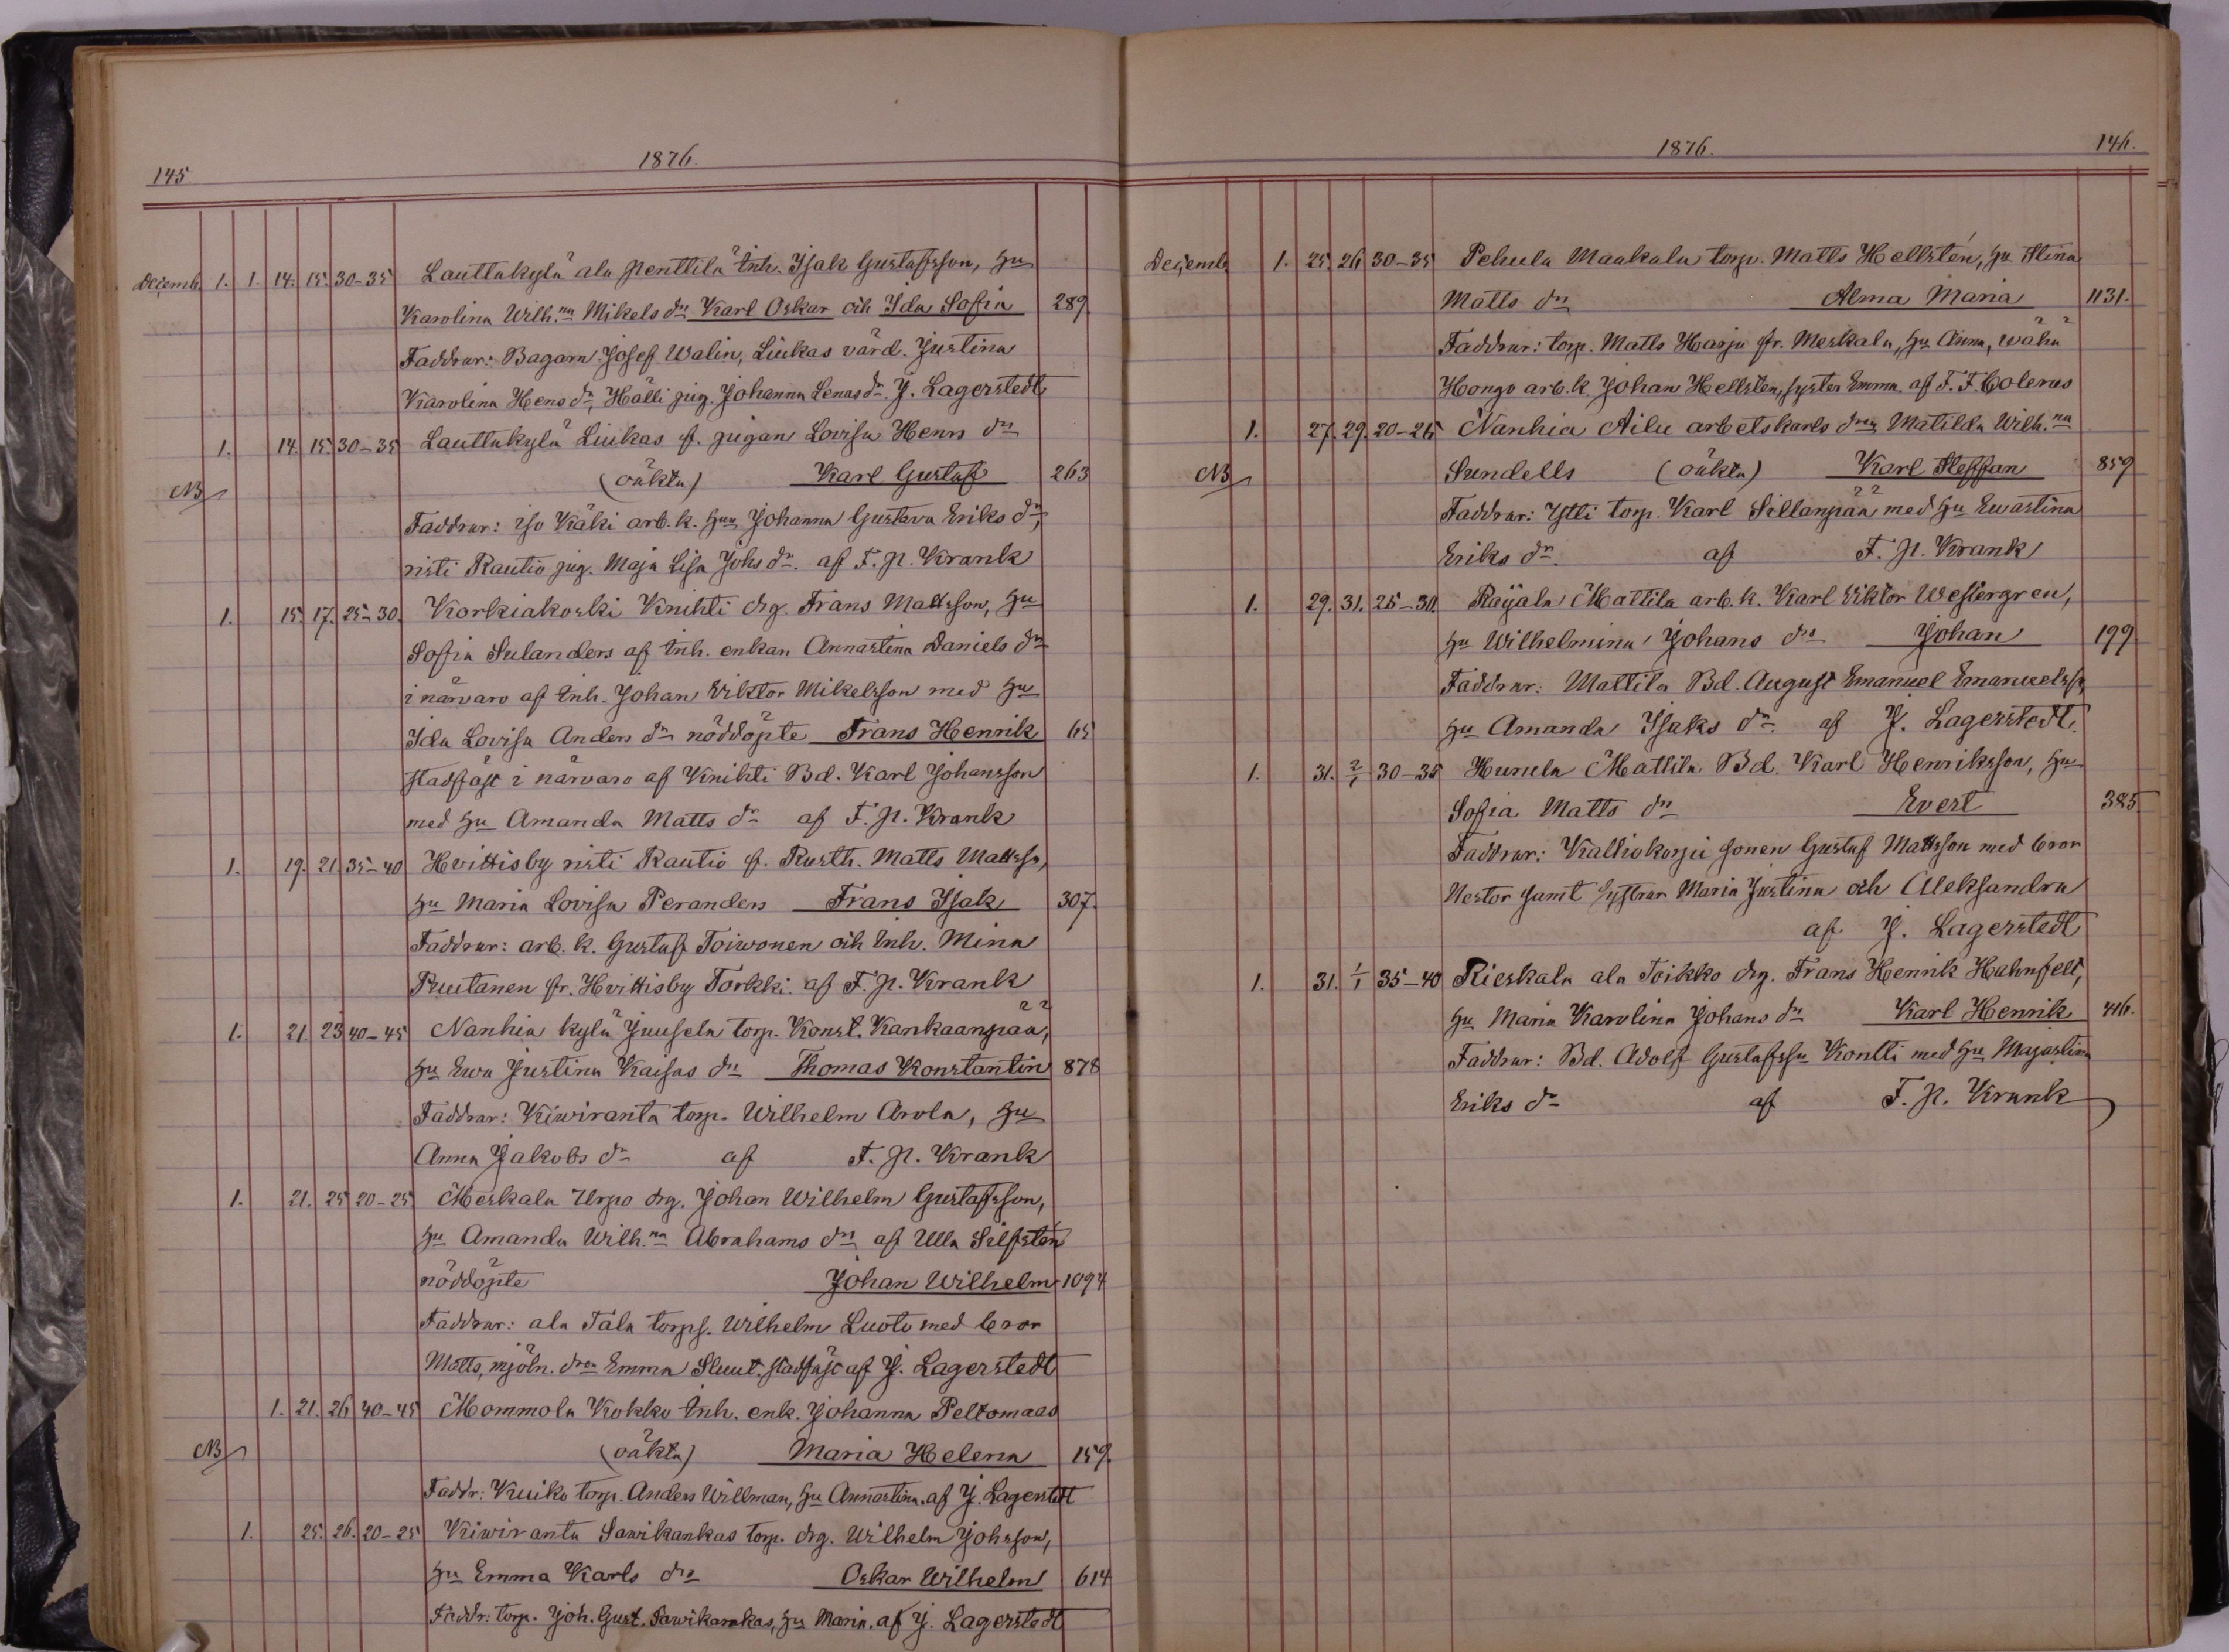 145
1876.
Decemb. 1. 1. 14. 15. 30-35 Lauttakylä ala Penttilä Inh. Isak Gustafsson, hu
Karolina Wilh:na Mikels dr Karl Oskar och Ida Sofia 289
Faddrar: Bagarn Josef Walin, Liukas värd. Justina
Karolina Hens dr, Hälli pig. Johanna Lenas dr. J. Lagerstedt
1. 14. 15. 30-35 Lauttakylä Liukas f. pigan Lovisa Henrs dr
NB (oäkta) Karl Gustaf 263
Faddrar: iso Käki arb. k. hun Johanna Gustava Eriks dr,
risti Rautio pig. Maja Lisa Johs dr. af F. P. Krank
1. 15. 17. 25-30. Korkiakoski Knihti drg. Frans Mattsson, hu
Sofia Sulanders af Inh. enkan Annastina Daniels dr
i närvaro af Inh. Johan Viktor Mikelsson med hu
Ida Lovisa Anders dr nöddöpte Frans Henrik 65
stadfäst i närvaro af Knihti Bd. Karl Johansson
med hu Amanda Matts dr af F. P. Krank
1. 19. 21. 35-40 Hvittisby risti Rautio f. Rusth. Matts Mattssn,
hu Maria Lovisa Peranders Frans Isak 307.
Faddrar: arb. k. Gustaf Toiwonen och Inh. Mina
Ruutanen fr. Hvittisby Torkki. af F. P. Krank
1. 21. 23 40-45 Nanhia kylä Juusela torp. Konst. Kankaanpää,
hu Ewa Justina Kaisas dr Thomas Konstantin 878
Faddrar: Kiwiranta torp. Wilhelm Arola, hu
Anna Jakobs dr af F. P. Krank
1. 21. 25 20-25 Meskala Urpo drg. Johan Wilhelm Gustafsson,
hu Amanda Wilh:na Abrahams dr af Ulla Silfstén
nöddöpte Johan Wilhelm 1094
Faddrar: ala Tala torps. Wilhelm Luoto med bror
Matts, mjöln. drn Emma Sluut. stadfäst af J. Lagerstedt
1. 21. 26 40-45 Mommola Kokko Inh. enk. Johanna Peltomaas
NB (oäkta) Maria Helena 159.
Faddr: Kuiko torp. Anders Willman, hu Annastina. af J. Lagerstedt
1. 25. 26. 20-25 Kiwiranta Sawikankas torp. drg. Wilhelm Johsson,
hu Emma Karls dr Oskar Wilhelm 614
Faddr: torp. Joh. Gust. Sawikankas, hu Maria. af J. Lagerstedt
1876.
146.
Decemb 1. 25. 26 30-35 Pehula Maakala torp. Matts Hellstén, hu Stina
Matts dr Alma Maria 1131.
Faddrar: torp. Matts Harju fr. Meskala, hu Anna, wähä
Hongo arb. k. Johan Hellsten, syster Emma. af F. F. Colerus
1. 27. 29. 20-25 Nanhia Ailu arbetskarls drn Matilda Wilh.na
NB Sundells (oäkta) Karl Steffan 859
Faddrar: Ytti torp. Karl Sillanpää med hu Ewastina
Eriks dr. af F. P. Krank
1. 29. 31. 25-30. Raijala Mattila arb. k. Karl Viktor Westergren,
hu Wilhelmina Johans dr Johan 199
Faddrar: Mattila Bd. August Emanuel Emanuelssn,
hu Amanda Isaks dr. af J. Lagerstedt.
1. 31. 2/1 30-35 Hurula Mattila Bd. Karl Henriksson, hu
Sofia Matts dr Evert 385
Faddrar: Kalliokorju sonen Gustaf Mattsson med bror
Nestor samt systrar Maria Justina och Aleksandra
af J. Lagerstedt
1. 31. 1/1 35-40 Rieskala ala Toikko drg. Frans Henrik Hahnfelt,
hu Maria Karolina Johans dr Karl Henrik 416.
Faddrar: Bd. Adolf Gustafssn Kontti med hu Majastina
Eriks dr af F. P. Krank